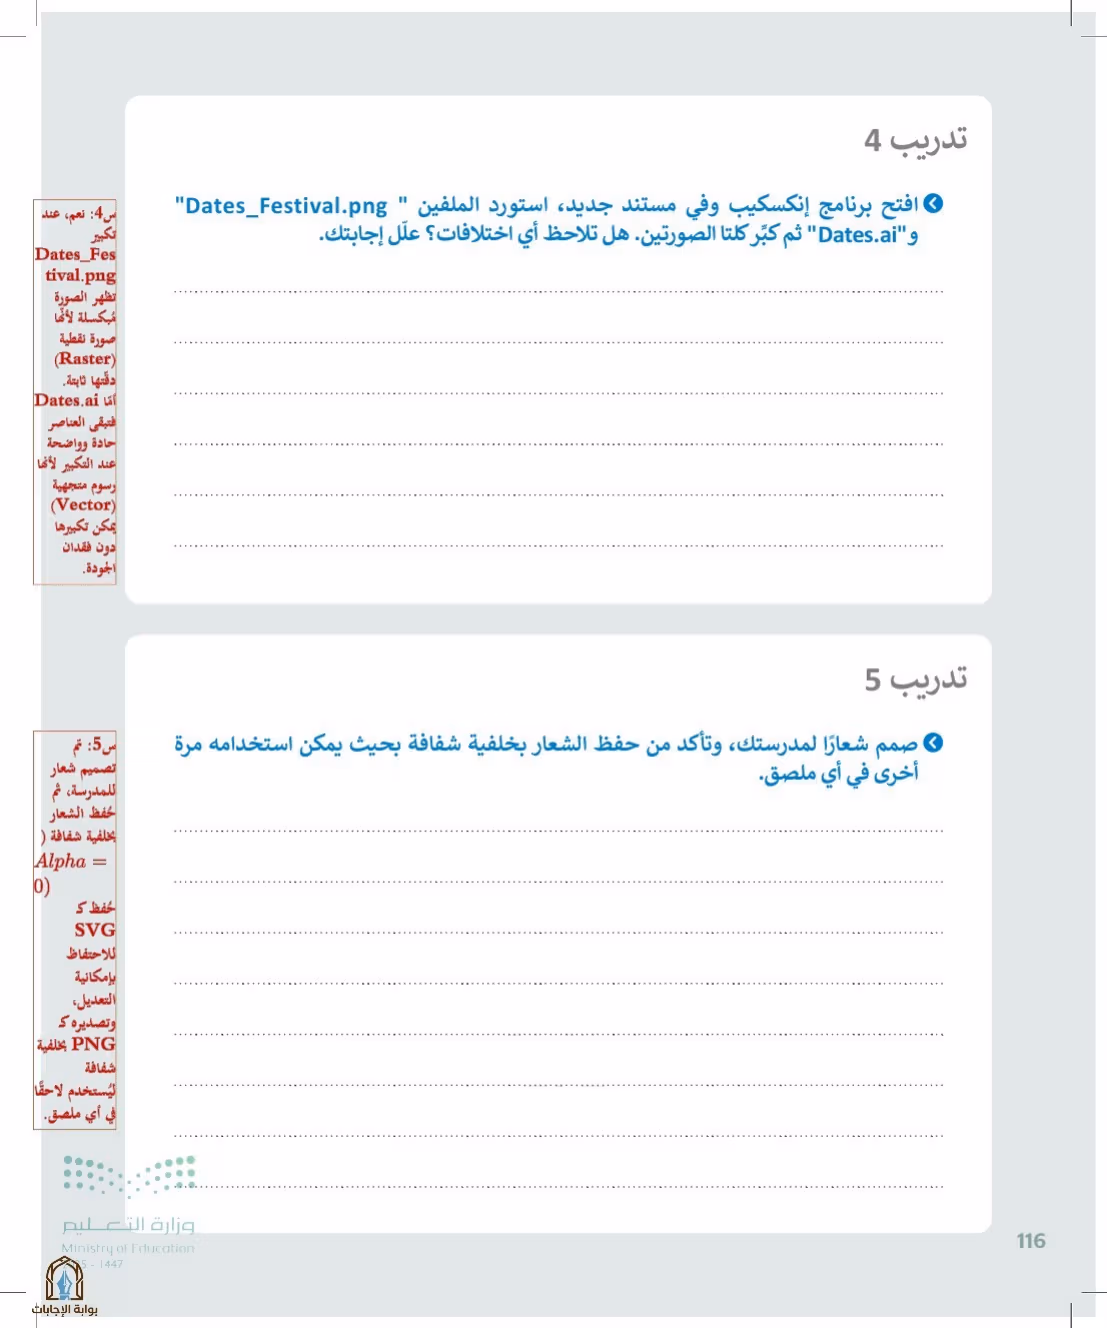 تدريب 4
افتح برنامج إنكسكيب وفي مستند جديد، استورد الملفين " Dates_Festival.png"
و"Dates.ai" ثم كبِّر كلتا الصورتين. هل تلاحظ أي اختلافات؟ علّل إجابتك.
س4: نعم، عند
تكبير
Dates_Fes
tival.png
تظهر الصورة
مُبكسلة لأنّها
صورة نقطية
(Raster)
دقّتها ثابتة.
أمّا Dates.ai
فتبقى العناصر
حادة وواضحة
عند التكبير لأنّها
رسوم متجهية
(Vector)
يمكن تكبيرها
دون فقدان
الجودة.
تدريب 5
صمم شعارًا لمدرستك، وتأكد من حفظ الشعار بخلفية شفافة بحيث يمكن استخدامه مرة
أخرى في أي ملصق.
س5: تم
تصميم شعار
للمدرسة، ثم
حُفظ الشعار
بخلفية شفافة (
Alpha =
0)
حُفظ كـ
SVG
للاحتفاظ
بإمكانية
التعديل،
وتصديره كـ
PNG بخلفية
شفافة
ليُستخدم لاحقًا
في أي ملصق.
وزارة التعليم
Ministry of Education
5 - 1447
116
بوابة الإجابات